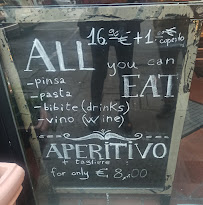 16.⁹⁰€ + 1.⁰⁰€
coperto
ALL
you can
EAT
-pinsa
-pasta
-bibite (drinks)
-vino (wine)
APERITIVO
+ tagliere
for only €